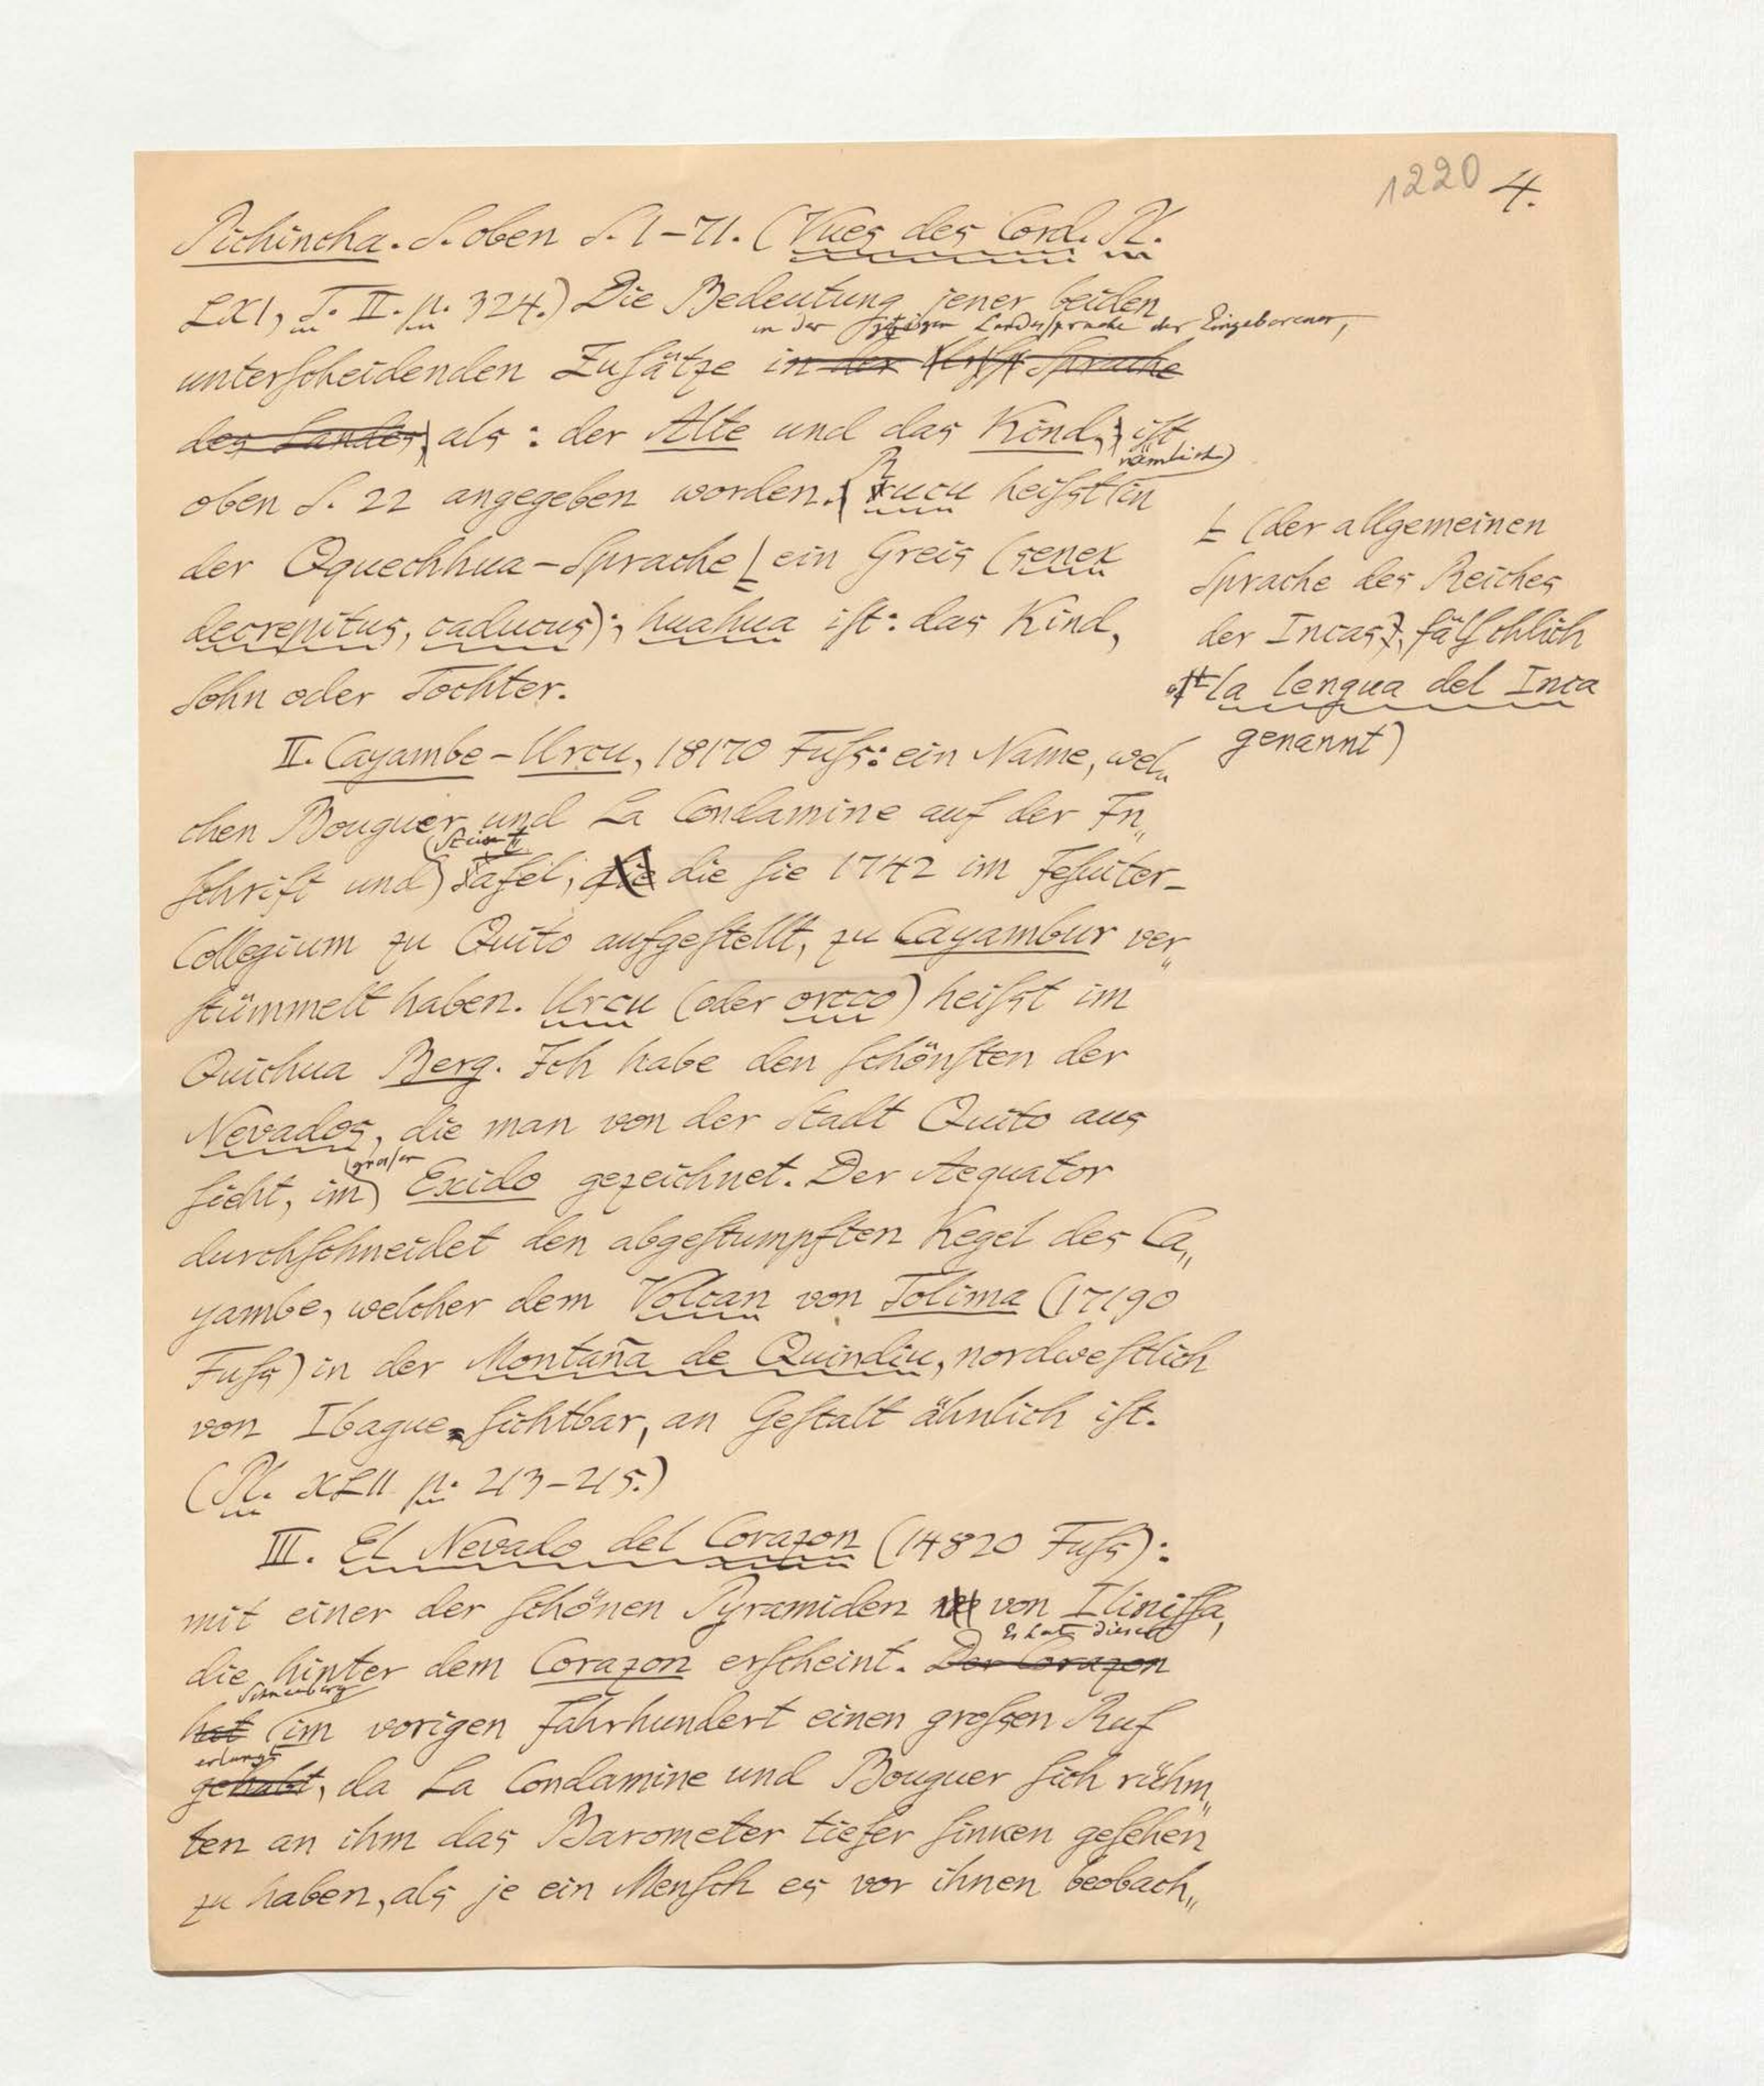 1220 4.
Pichincha. S. oben S. 1–71. (Vues des Cord. Pl.
LXI, T. II. p. 324.) Die Bedeutung jener beiden
in der jetzigen Landessprache der Eingeborenen,
unterscheidenden Zusätze in der Sprache
des Landes, als: der Alte und das Kind, ist
nämlich
oben S. 22 angegeben worden. Rucu heißt in
der Qquechhua-Sprache ein Greis (senex
decrepitus, caducus); huahua ist: das Kind,
Sohn oder Tochter.
(der allgemeinen
Sprache des Reiches
der Incas, fälschlich
oft la lengua del Inca
genannt)
II. Cayambe-Urcu, 18170 Fuß: ein Name, wel„
chen Bouguer und La Condamine auf der In„
Stein
schrift und Tafel, die die sie 1742 im Jesuiter-
Collegium zu Quito aufgestellt, zu Cayambur ver„
stümmelt haben. Urcu (oder orcco) heißt im
Quichua Berg. Ich habe den schönsten der
Nevados, die man von der Stadt Quito aus
großen
sieht, im Exido gezeichnet. Der Aequator
durchschneidet den abgestumpften Kegel des Ca„
yambe, welcher dem Volcan von Tolima (17190
Fuß) in der Montaña de Quindiu, nordwestlich
von Ibague sichtbar, an Gestalt ähnlich ist.
(Pl. XLII p. 213–215.)
III. El Nevado del Corazon (14820 Fuß):
mit einer der schönen Pyramiden von Ilinissa,
Es hat dieser
die hinter dem Corazon erscheint. Der Corazon
Schneeberg
hat im vorigen Jahrhundert einen großen Ruf
erlangt
gehabt, da La Condamine und Bouguer sich rühm„
ten an ihm das Barometer tiefer sinken gesehen
zu haben, als je ein Mensch es vor ihnen beobach„